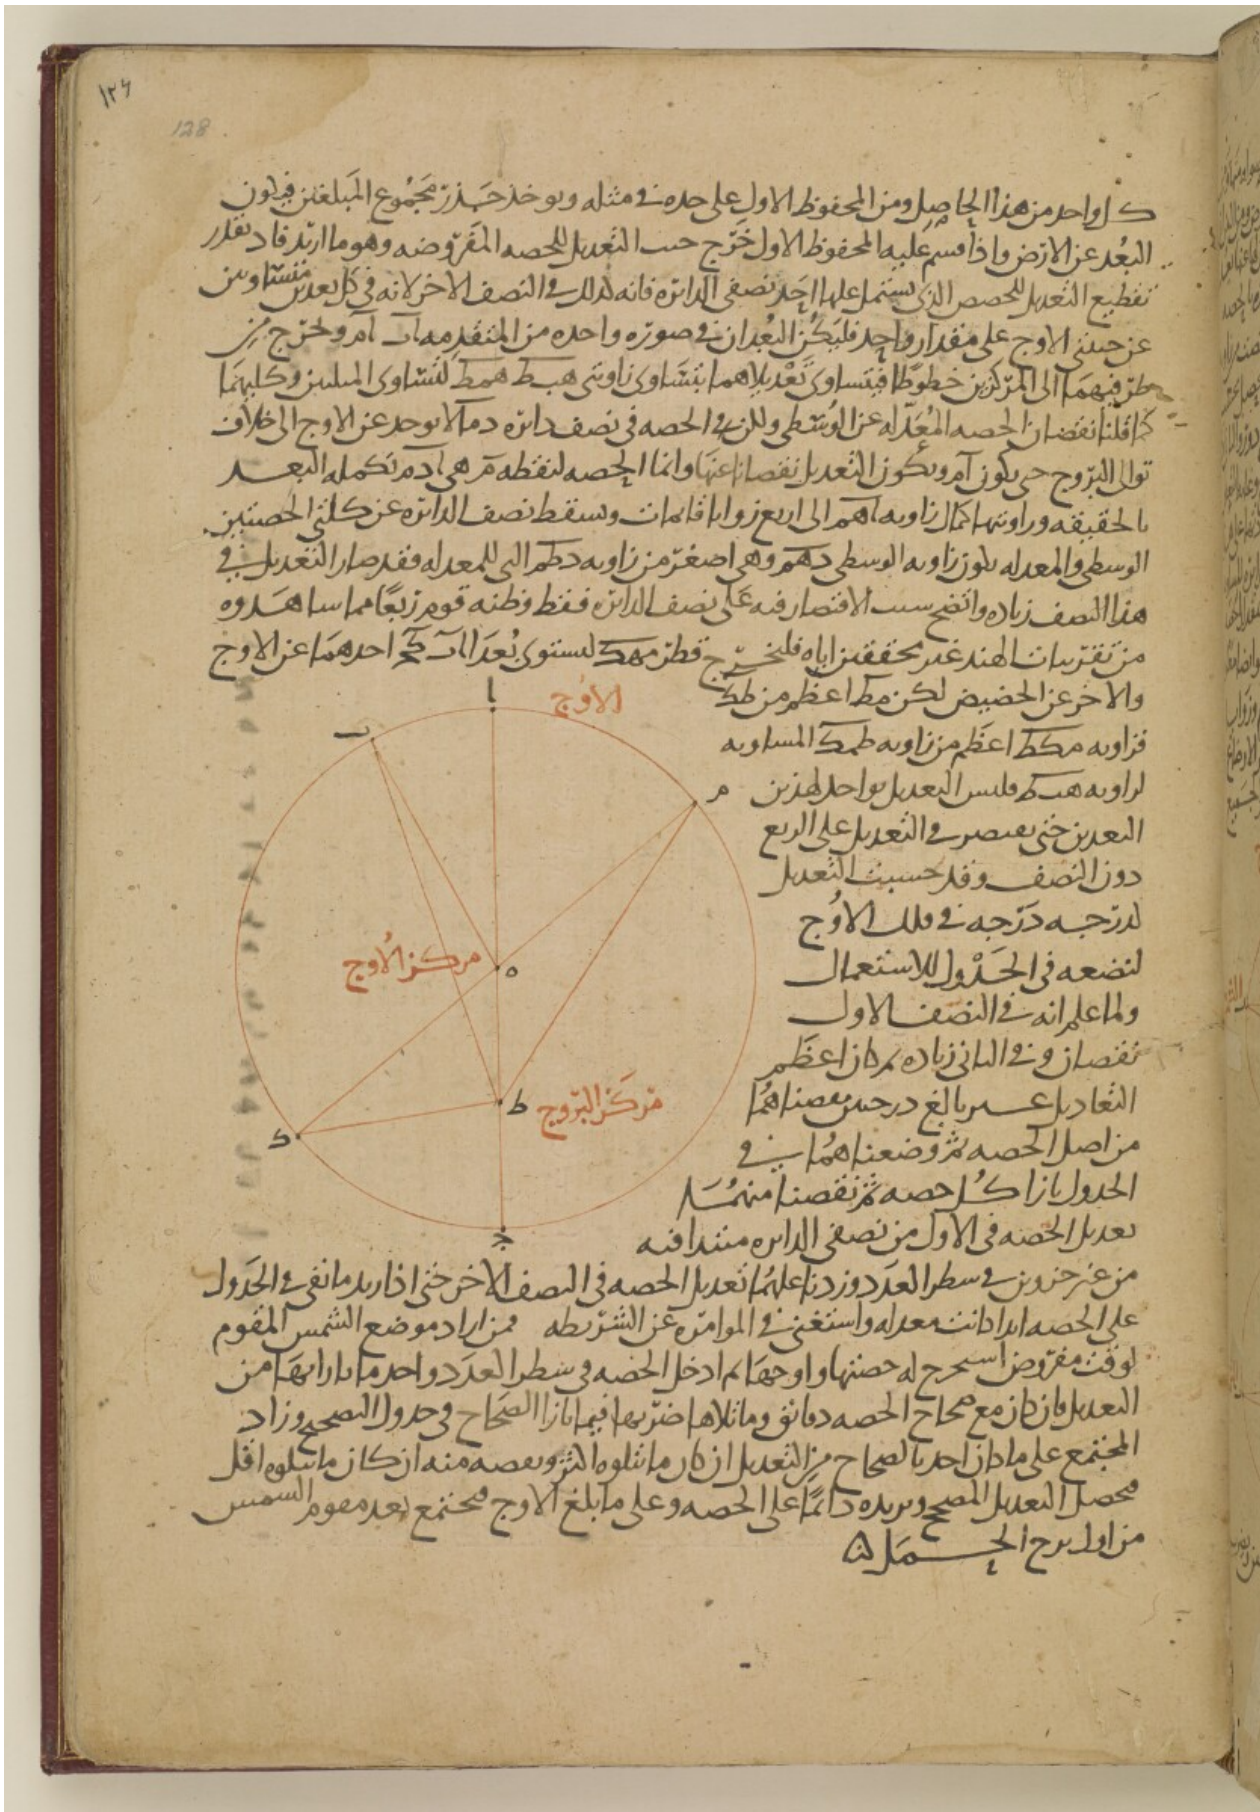 ١٢٤
128
كل واحد من هذا الحاصل ومن المحفوظ الاول على حده في مثله ويوخذ جذر مجموع المبلغين فيكون
البعد عن الارض واذا قسم عليه المحفوظ الاول خرج جيب التعديل للحصه المفروضه وهو ما اريد فاد بقدر
تقطيع التعديل للحصص الذي يشتمل عليها احد نصفى الدائره فانه كذلك في النصف الاخر لانه في كل بعدين متساويين
عن جنبتي الاوج على مقدار واحد فليكن البعدان في صوره واحده من المتقدمه اب ام ونخرج من
طرفيهما الى المركزين خطوطا فيتساوى تعديلاهما بتساوى زاويتى هبط همط لتساوى الميلين وكليهما
كما قلنا نقصان الحصه المعدله عن الوسطى ولكن الحصه في نصف دائره دما لا توجد عن الاوج الى خلاف
توالى البروج حتى يكون ام ويكون التعديل نقصانا عنها وانما الحصه لنقطه م هى ادم تكمله البعد
بالحقيقه وزاويتها كمال زاويه اهم الى اربع زوايا قايمات ويسقط نصف الدائره عن كلتى الحصتين
الوسطى والمعدله يكون زاويه الوسطى دهم وهى اصغر من زاويه دطم التى للمعدله فقد صار التعديل في
هذا النصف زياده واتضح سبب الاقتصار فيه على نصف الدائره فقط وظنه قوم ربعا مما شاهدوه
من تقريبات الهند غير محققين اياه فلنخرج قطر مهك ليستوى بعدا اب كج احدهما عن الاوج
والاخر عن الحضيض لكن مط اعظم من طك
فزاويه مكط اعظم من زاويه طمك المساويه
لزاويه هبط فليس التعديل بواحد لهذين
البعدين حتى يقتصر في التعديل على الربع
دون النصف وقد حسبت التعديل
لدرجه درجه في فلك الاوج
لنضعه في الجدول للاستعمال
ولما علم انه في النصف الاول
نقصان وفي الثانى زياده وكان اعظم
التعاديل غير بالغ درجتين نقصناهما
من اصل الحصه ثم وضعناهما في
الجدول بازا كل حصه ثم نقصنا منهما
تعديل الحصه في الاول من نصفى الدائره مبتدا فيه
من غير حزوين في سطر العدد وزدنا عليهما تعديل الحصه في النصف الاخر حتى اذا زيد ما نفى في الجدول
على الحصه ابدا كانت معدله واستغنى في المؤامره عن الشريطه فمن اراد موضع الشمس المقوم
لوقت مفروض استخرج له حصتها واوجها ثم ادخل الحصه في سطر العدد واخذ ما بازائها من
التعديل فان كان مع صحاح الحصه دقائق وما تلاها ضربها فيما بازا الصحاح في جدول التصحيح وزاد
المجتمع على ما كان اخذ بالصحاح من التعديل ان كان ما يتلوه اكثر ونقصه منه ان كان ما يتلوه اقل
فيحصل التعديل المصحح ويزيده دائما على الحصه وعلى ما بلغ الاوج فيجتمع بعد مقوم الشمس
من اول برج الحمل
الاوج
ا
ب
م
مركز الاوج
ه
ط
مركز البروج
ك
ج